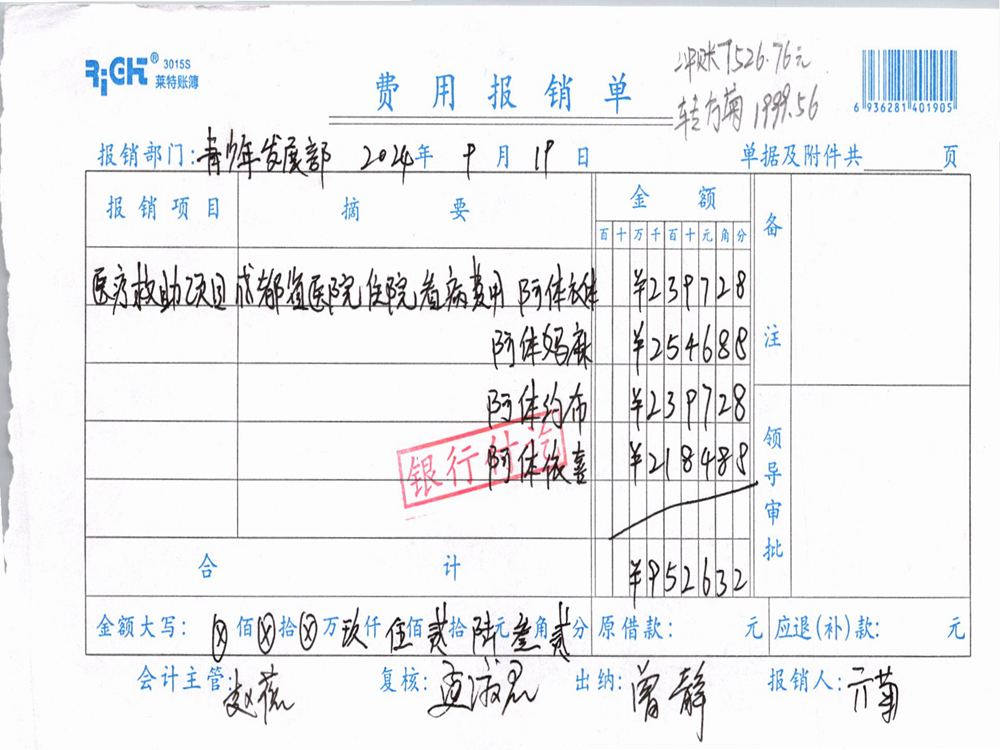 RiGHT® 3015S
莱特账簿
费用报销单
冲账7526.76元
转方菊1999.56
6 936281 401905
报销部门:青少年发展部 2024年 9月 19日 单据及附件共 页
报销项目 摘要 金额 备注
百十万千百十元角分
医疗救助项目 成都省医院住院看病费用 阿体衣体 ¥239728
阿体妈麻 ¥254688
阿体约布 ¥239728
阿体依喜 ¥218488
银行付讫
领导审批
合计 ¥952632
金额大写: ⊗佰⊗拾⊗万玖仟伍佰贰拾陆元叁角贰分 原借款: 元 应退(补)款: 元
会计主管: 赵薇 复核: 出纳: 曾静 报销人: 亓菊